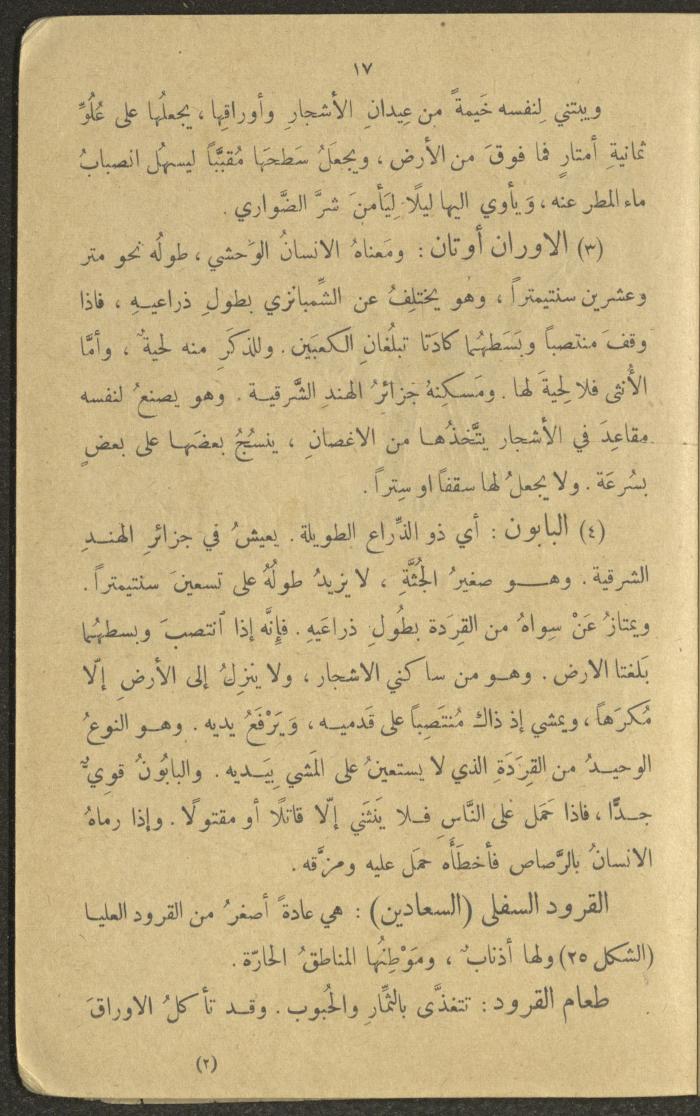 ١٧
ويبتني لِنفسه خَيمةً من عِيدانِ الأشجارِ وأوراقِها ، يجعلُها على عُلُوِّ
ثمانيةِ أمتارٍ فما فوقَ من الأرض ، ويجعَلُ سَطحَها مُقبَّباً ليسهُل انصبابُ
ماء المطر عنه ، وَيأوي اليها ليلًا لِيَأمنَ شرَّ الضَّواري .
(٣) الاوران أوتان : ومَعناهُ الانسانُ الوَحشي ، طولُه نحو متر
وعشرين سنتيمتراً ، وهو يختلِفُ عن الشِّمبانزي بطولِ ذراعيـهِ ، فاذا
وقفَ منتصباً وبَسَطهُـما كادَتا تبلُغانِ الكعبَين . وللذكَرِ منه لحيةٌ ، وأمَّا
الأُنثى فلا لِحيةَ لها . ومَسكِنهُ جزائرُ الهندِ الشَّرقيـة . وهو يصنعُ لنفسه
مقاعِدَ في الأشجار يتَّخذُهـا من الاغصانِ ، ينسُجُ بعضَهـا على بعضٍ
بسُرعَة . ولا يجعلُ لها سقفاً او سِتراً .
(٤) البابون : أي ذو الذِّراع الطويلة . يعيشُ في جزائرِ الهنـدِ
الشرقية . وهـــو صغيرُ الجُثَّةِ ، لا يزيدُ طولُهُ على تسعينَ سنتيمتراً .
ويمتازُ عَنْ سِواهُ من القِرَدة بطُولِ ذراعَيهِ . فإنَّه إذا اُنتصبَ وبسطهُـما
بَلغتا الارض . وهـو من ساكني الاشجار ، ولا ينزلُ إلى الأرضِ إلّا
مُكرَهاً ، ويمشي إذ ذاك مُنتَصِباً على قَدميـه ، وَيَرْفَعُ يديه . وهـو النوعُ
الوحيـدُ من القِرَدَةِ الذي لا يستعينُ على المَشي بِيَـديه . والبابُونُ قوِيٌّ
جـدًّا ، فاذا حَمَل عَلى النَّاسِ فـلا يَنثَني إلّا قاتلًا أو مقتولًا . وإذا رماهُ
الانسانُ بالرَّصاص فأخطَأَه حمَل عليه ومزَّقه .
القرود السفلى (السعادين) : هي عادةً أصغرُ من القرود العليـا
(الشكل ٢٥) ولها أذنابٌ ، ومَوْطِنُها المناطقُ الحارّة .
طعام القرود : تتغذَّى بالثِّمارِ والحُبوب . وقـد تأكلُ الاوراقَ
(٢)